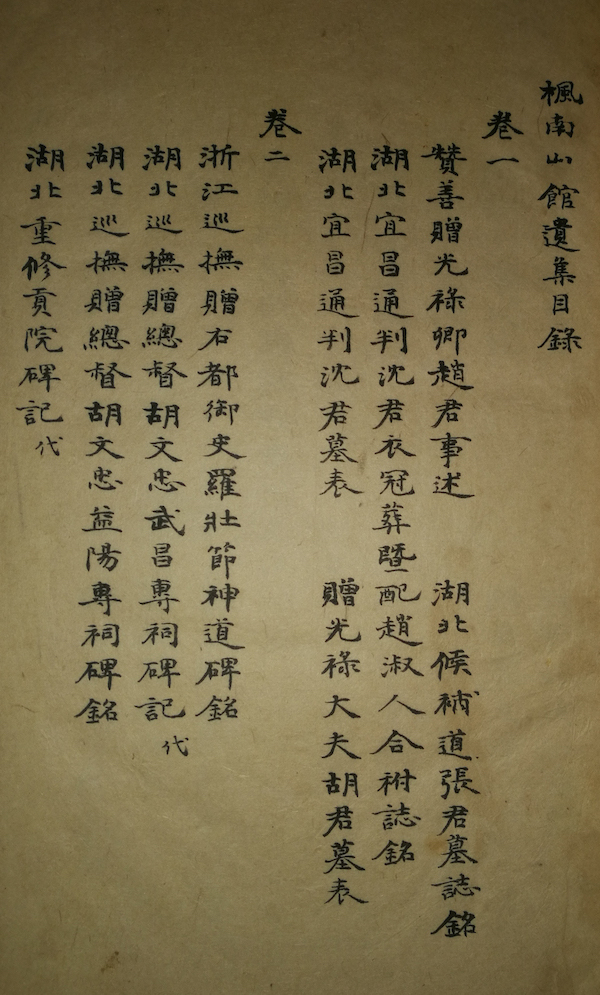 楓南山館遺集目錄
卷一
贊善贈光祿卿趙君事述　湖北候補道張君墓誌銘
湖北宜昌通判沈君衣冠葬暨配趙淑人合祔誌銘
湖北宜昌通判沈君墓表　贈光祿大夫胡君墓表
卷二
浙江巡撫贈右都御史羅壯節神道碑銘
湖北巡撫贈總督胡文忠武昌專祠碑記代
湖北巡撫贈總督胡文忠益陽專祠碑銘
湖北重修貢院碑記代